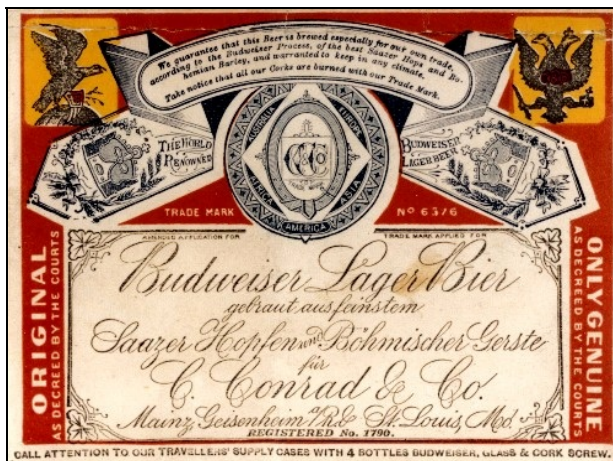 We guarantee that this Beer is brewed especially for our own trade,
according to the Budweiser Process, of the best Saazer Hops and Bo-
hemian Barley, and warranted to keep in any climate.
Take notice that all our Corks are burned with our Trade Mark.
THE WORLD
RENOWNED
AUSTRALIA
EUROPE
AFRICA
ASIA
AMERICA
CC&Co
TRADE MARK
BUDWEISER
LAGER BEER
TRADE MARK
No 6376
AMENDED APPLICATION FOR
TRADE MARK APPLIED FOR
ORIGINAL
AS DECREED BY THE COURTS
Budweiser Lager Bier
gebraut aus feinstem
Saazer Hopfen und Böhmischer Gerste
für
C. Conrad & Co.
Mainz, Geisenheim a/R. & St. Louis, Mo.
REGISTERED No. 1790.
ONLY GENUINE
AS DECREED BY THE COURTS
CALL ATTENTION TO OUR TRAVELLERS' SUPPLY CASES WITH 4 BOTTLES BUDWEISER, GLASS & CORK SCREW.